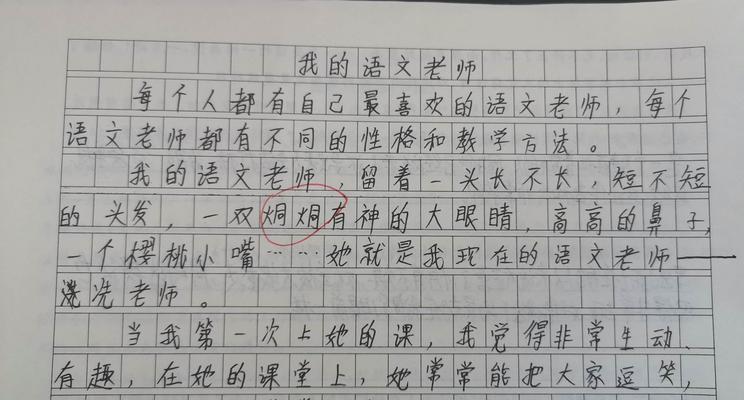 我的语文老师
每个人都有自己最喜欢的语文老师，每个
语文老师都有不同的性格和教学方法。
我的语文老师，留着一头长不长，短不短
的头发，一双炯炯有神的大眼睛，高高的鼻子，
一个樱桃小嘴……她就是我现在的语文老师——
冼老师。
当我第一次上她的课，我觉得非常生动、
有趣，在她的课堂上，她常常能把大家逗笑，